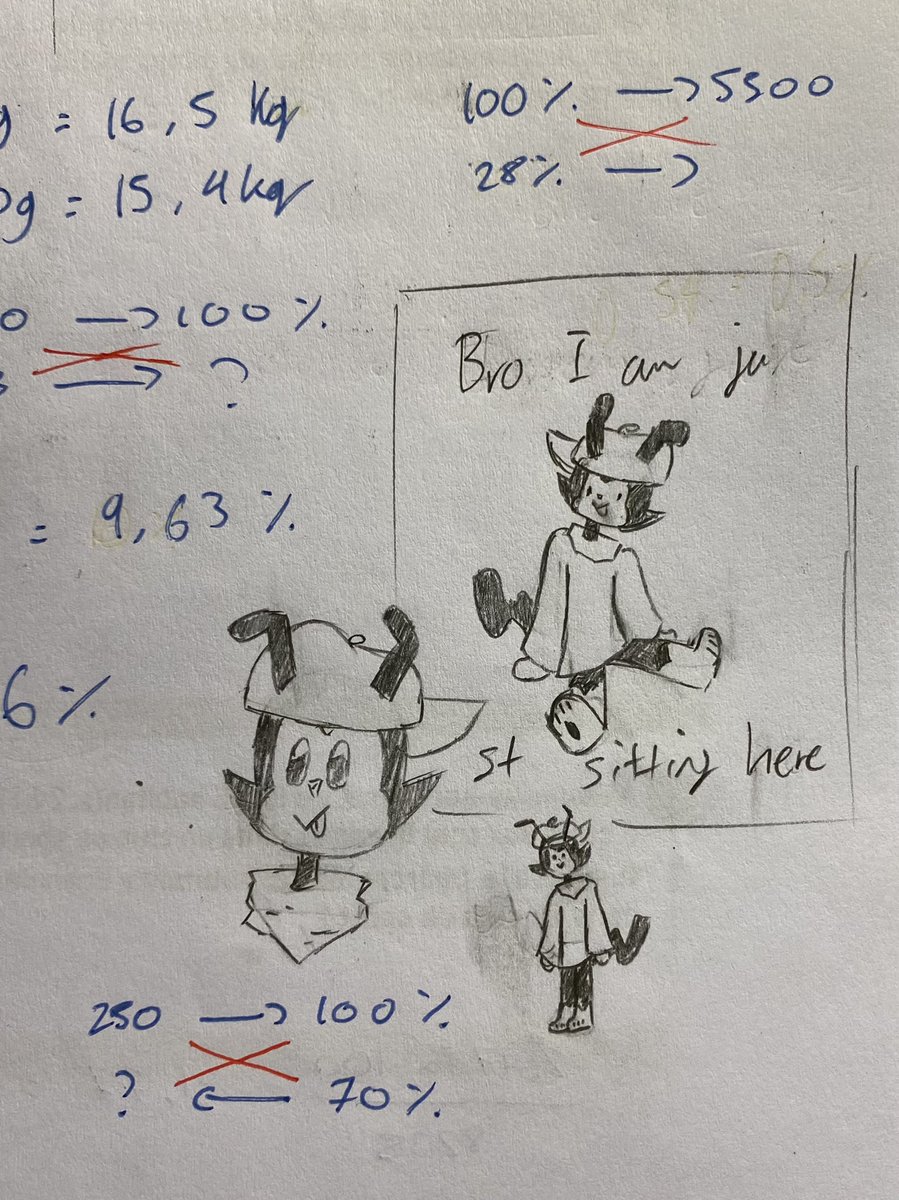 g = 16,5 kg
0g = 15,4 kg
100% → 5500
28% →
0 → 100%
→ ?
= 9,63 %
6%
Bro I am just
st sitting here
250 → 100%
? ← 70%